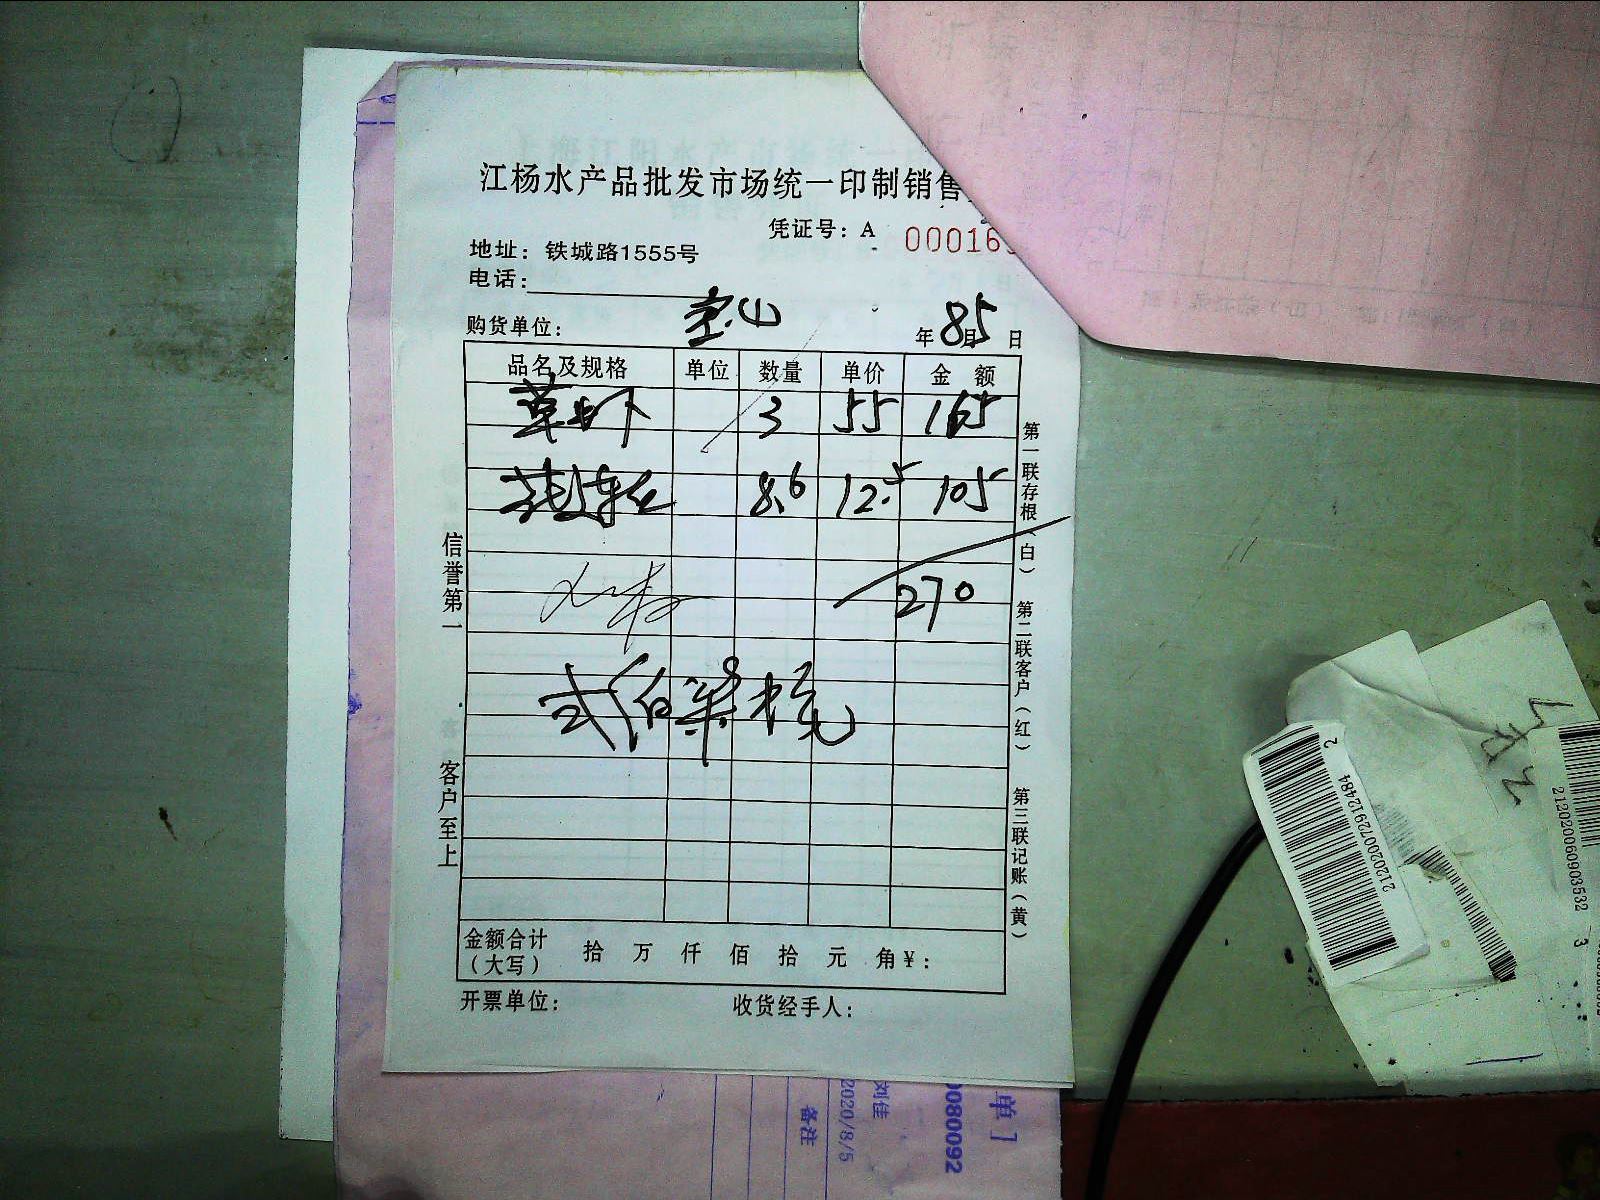 江杨水产品批发市场统一印制销售
凭证号：A 000165
地址：铁城路1555号
电话：
购货单位： 宝山 年 8月5 日
品名及规格 单位 数量 单价 金 额
草虾 3 55 165
8.6 12.5 105
270
弍佰柒拾元
金额合计（大写） 拾 万 仟 佰 拾 元 角 ¥：
开票单位： 收货经手人：
信誉第一 客户至上
第一联存根（白） 第二联客户（红） 第三联记账（黄）
单]
0080092
刘佳
2020/8/5
备注
2
212020072912484
212020060903532
3